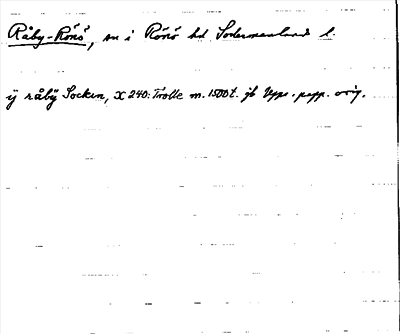 Råby-Rönö, sn i Rönö hd Södermanland l.
ÿ råbÿ Socken, X 240: Trolle m. 1500t. jb Upps. papp. orig.